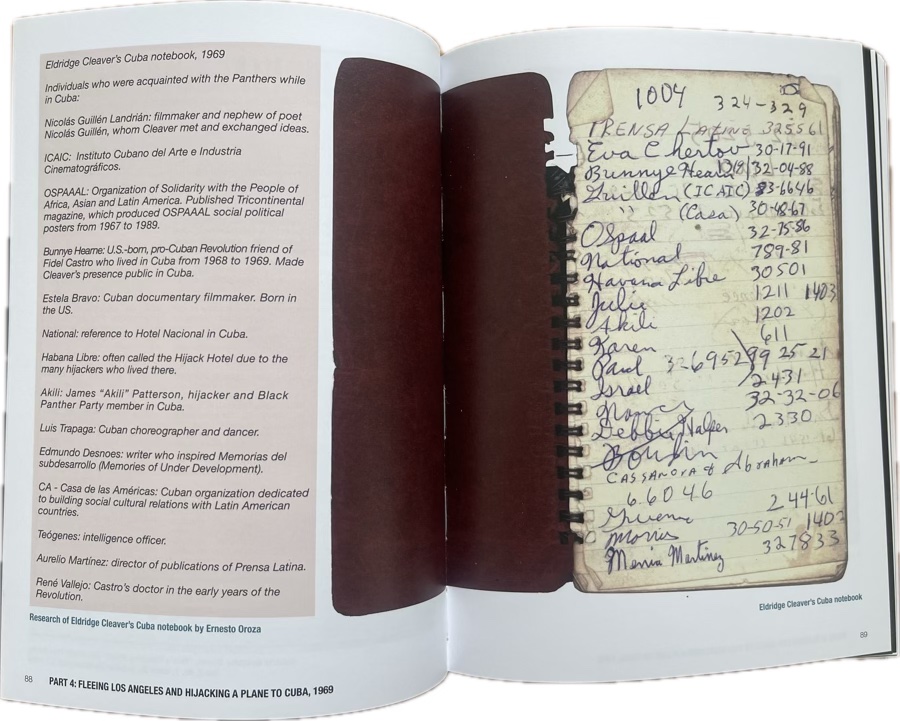 Eldridge Cleaver's Cuba notebook, 1969
Individuals who were acquainted with the Panthers while
in Cuba:
Nicolás Guillén Landrián: filmmaker and nephew of poet
Nicolás Guillén, whom Cleaver met and exchanged ideas.
ICAIC: Instituto Cubano del Arte e Industria
Cinematográficos.
OSPAAAL: Organization of Solidarity with the People of
Africa, Asian and Latin America. Published Tricontental
magazine, which produced OSPAAAL social political
posters from 1967 to 1989.
Bunnye Hearne: U.S.-born, pro-Cuban Revolution friend of
Fidel Castro who lived in Cuba from 1968 to 1969. Made
Cleaver's presence public in Cuba.
Estela Bravo: Cuban documentary filmmaker. Born in
the US.
National: reference to Hotel Nacional in Cuba.
Habana Libre: often called the Hijack Hotel due to the
many hijackers who lived there.
Akili: James "Akili" Patterson, hijacker and Black
Panther Party member in Cuba.
Luis Trapaga: Cuban choreographer and dancer.
Edmundo Desnoes: writer who inspired Memorias del
subdesarrollo (Memories of Under Development).
CA - Casa de las Américas: Cuban organization dedicated
to building social cultural relations with Latin American
countries.
Teógenes: intelligence officer.
Aurelio Martínez: director of publications of Prensa Latina.
René Vallejo: Castro's doctor in the early years of the
Revolution.
Research of Eldridge Cleaver's Cuba notebook by Ernesto Oroza
88 PART 4: FLEEING LOS ANGELES AND HIJACKING A PLANE TO CUBA, 1969
1004 324-329
PRENSA LATINE 325561
Eva Chertov 30-17-91
Bunnye Hearn 32-04-88
Guillen (ICAIC) 3-6646
" (Casa) 30-48-67
Ospaal 32-75-86
National 789-81
Havana Libre 30501
Julie 1211 1403
Akili 1202
Karen 611
Paul 3-6952 99 25 21
Israel 2431
Nancy 32-32-06
Debbie Halper 2330
CASSANOVA & Abraham
6.6046
244-61
Morris 30-50-51 1402
Martinez 327833
Eldridge Cleaver's Cuba notebook
89